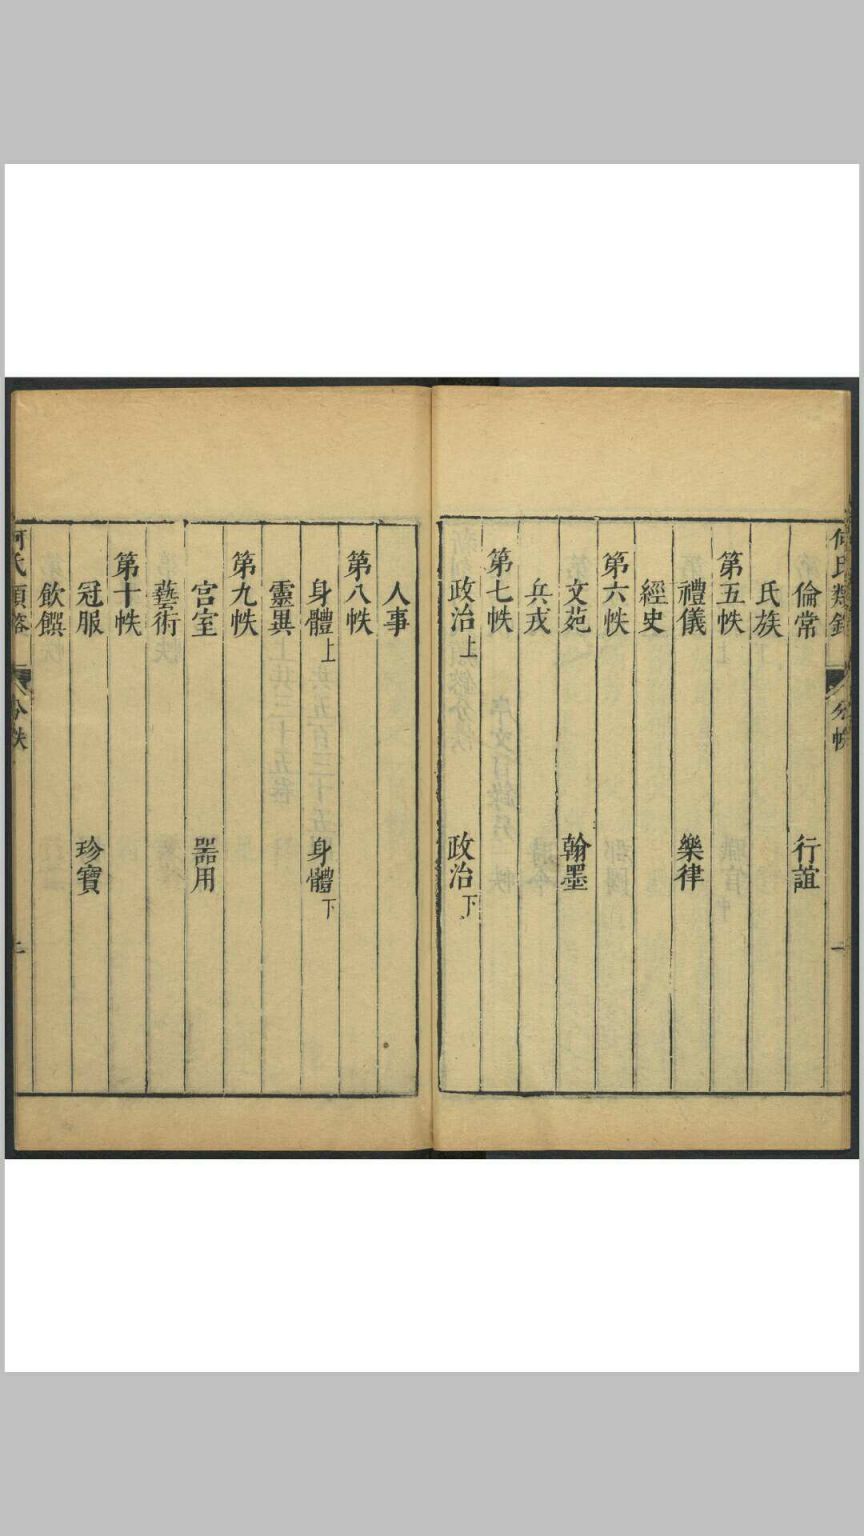 何氏類鎔 分帙 一
倫常 行誼
氏族
第五帙
禮儀 樂律
經史
第六帙
文苑 翰墨
兵戎
第七帙
政治上 政治下
人事
第八帙
身體上 身體下
靈異
第九帙
宮室 器用
藝術
第十帙
冠服 珍寶
飲饌
何氏類鎔 分帙